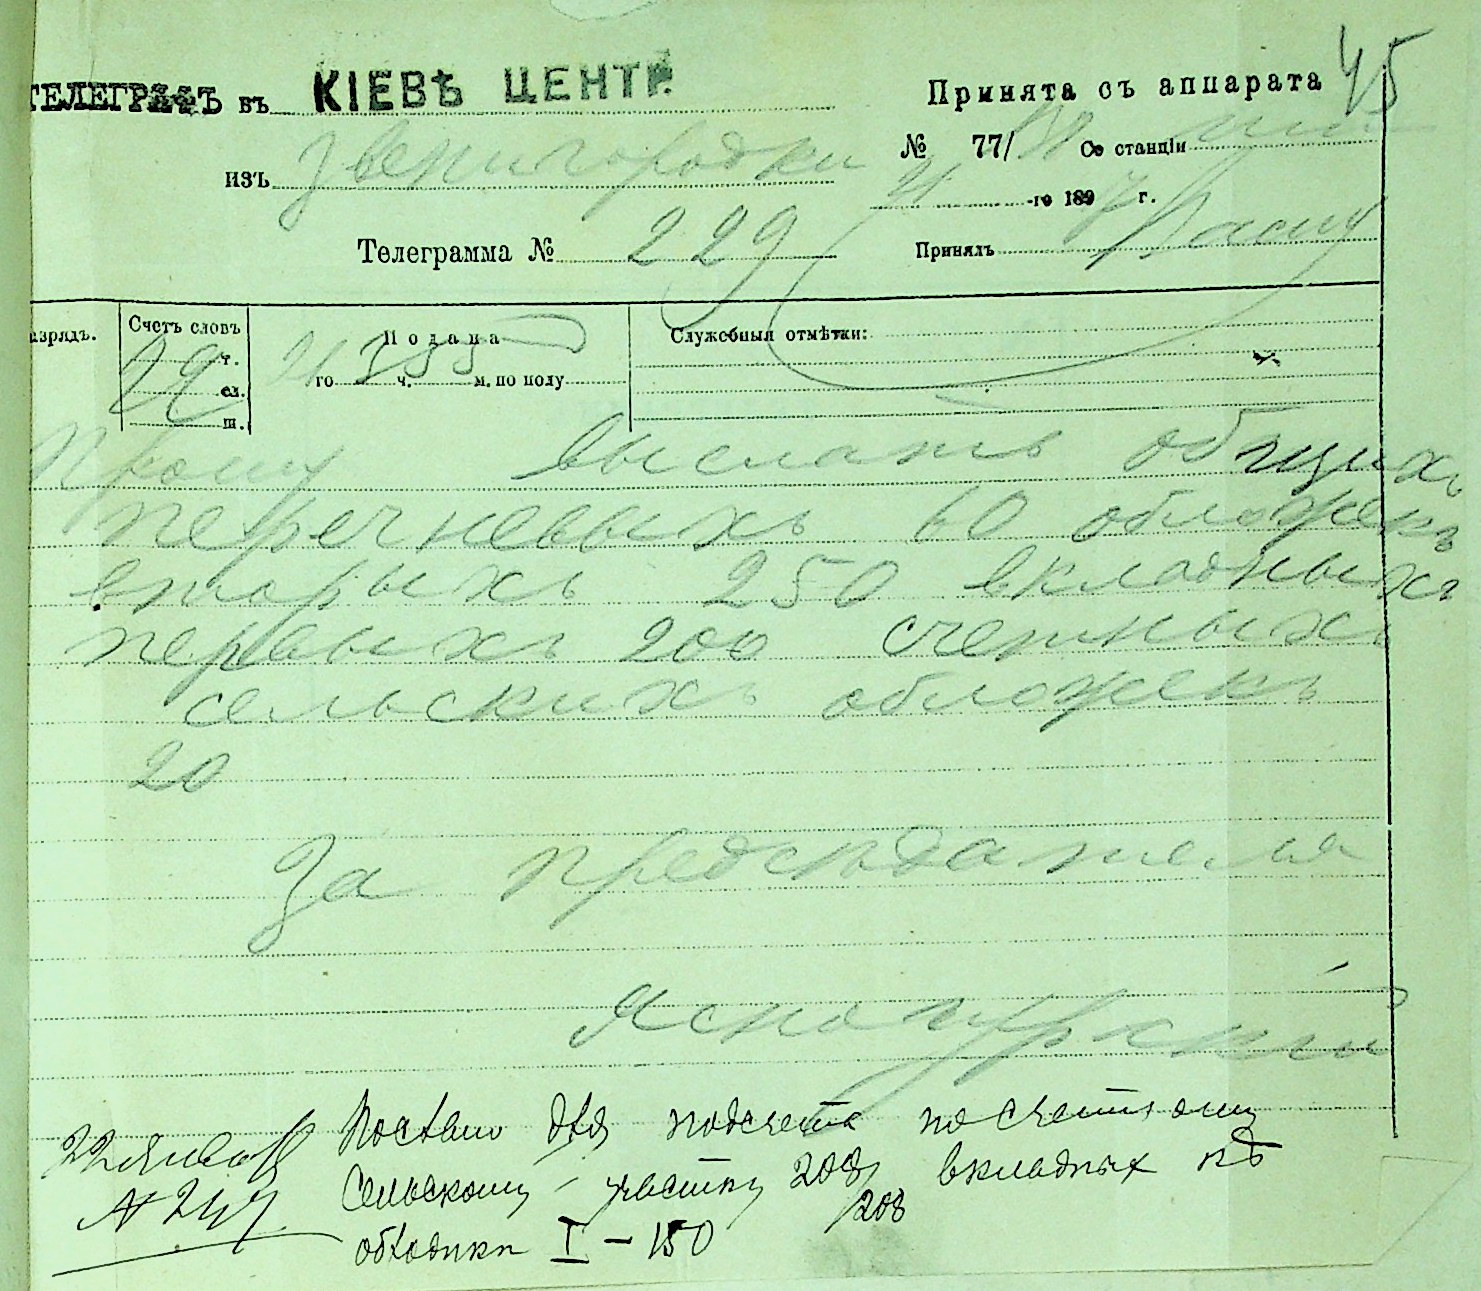 45
ТЕЛЕГРАФЪ въ КІЕВѢ ЦЕНТР.
Принята съ аппарата
№ 77/ Со станціи
изъ Звенигородки
21 -го 1897 г.
Телеграмма № 229
Принялъ
азрядъ.
Счетъ словъ
22
т.
ел.
ш.
Подана
21 го 3 ч. 55 м. по полу
Служебныя отмѣтки:
Прошу выслать общихъ
перечневыхъ 60 обложекъ
вторыхъ 250 вкладныхъ
первыхъ 200 счетныхъ
сельскихъ обложекъ
20
За предсѣдателя
Ясногурскій
22 Января
Послано для подсчета по счетному
Сельскому участку 200/200 вкладных къ
обложки I – 150